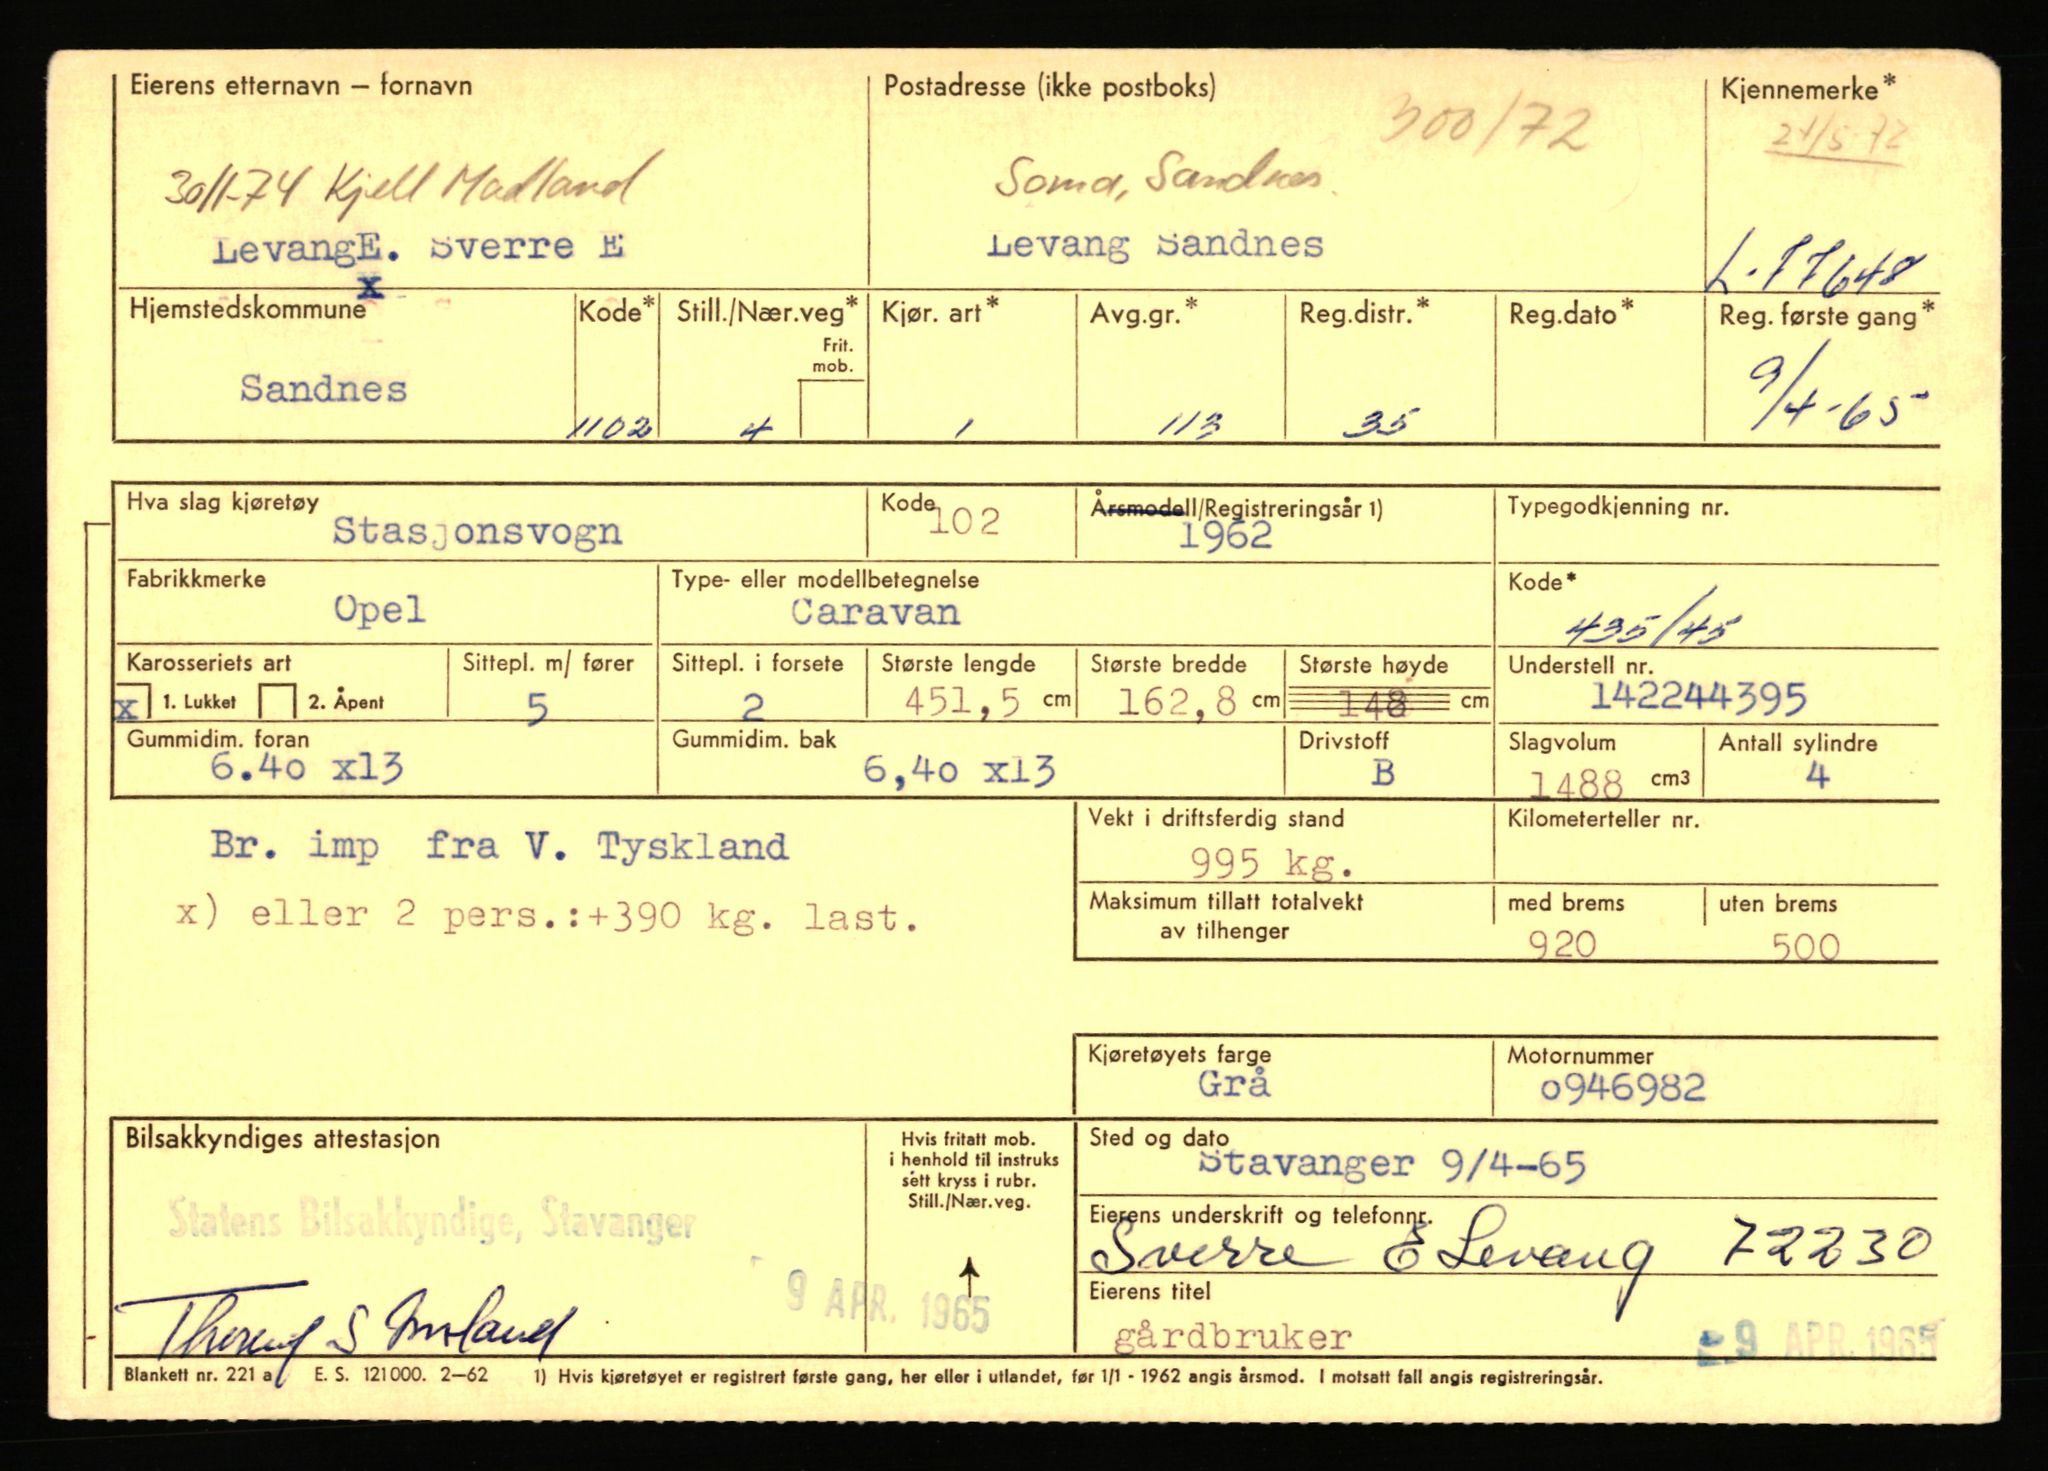 Eierens etternavn – fornavn
Postadresse (ikke postboks)
Kjennemerke*
300/72
27/5-72
30/1-74 Kjell Madland
Soma, Sandnes.
LevangE. Sverre E
Levang Sandnes
L-77648
x
Hjemstedskommune
Kode*
Still./Nær.veg*
Kjør. art*
Avg.gr.*
Reg.distr.*
Reg.dato*
Reg. første gang*
Frit.
mob.
Sandnes
1102
4
1
113
35
9/4-65
Hva slag kjøretøy
Kode
Årsmodell/Registreringsår 1)
Typegodkjenning nr.
Stasjonsvogn
102
1962
Fabrikkmerke
Type- eller modellbetegnelse
Kode*
Opel
Caravan
435/45
Karosseriets art
Sittepl. m/ fører
Sittepl. i forsete
Største lengde
Største bredde
Største høyde
Understell nr.
x 1. Lukket 2. Åpent
5
2
451,5 cm
162,8 cm
148 cm
142244395
Gummidim. foran
Gummidim. bak
Drivstoff
Slagvolum
Antall sylindre
6.40 x13
6,40 x13
B
1488 cm3
4
Br. imp fra V. Tyskland
x) eller 2 pers.:+390 kg. last.
Vekt i driftsferdig stand
Kilometerteller nr.
995 kg.
Maksimum tillatt totalvekt
av tilhenger
med brems
uten brems
920
500
Kjøretøyets farge
Motornummer
Grå
o946982
Bilsakkyndiges attestasjon
Hvis fritatt mob.
i henhold til instruks
sett kryss i rubr.
Still./Nær.veg.
Sted og dato
Stavanger 9/4-65
Statens Bilsakkyndige, Stavanger
9 APR. 1965
Eierens underskrift og telefonnr.
Sverre E Levang 72230
Eierens titel
gårdbruker
9 APR. 1965
Blankett nr. 221 a E. S. 121000. 2–62 1) Hvis kjøretøyet er registrert første gang, her eller i utlandet, før 1/1 - 1962 angis årsmod. I motsatt fall angis registreringsår.